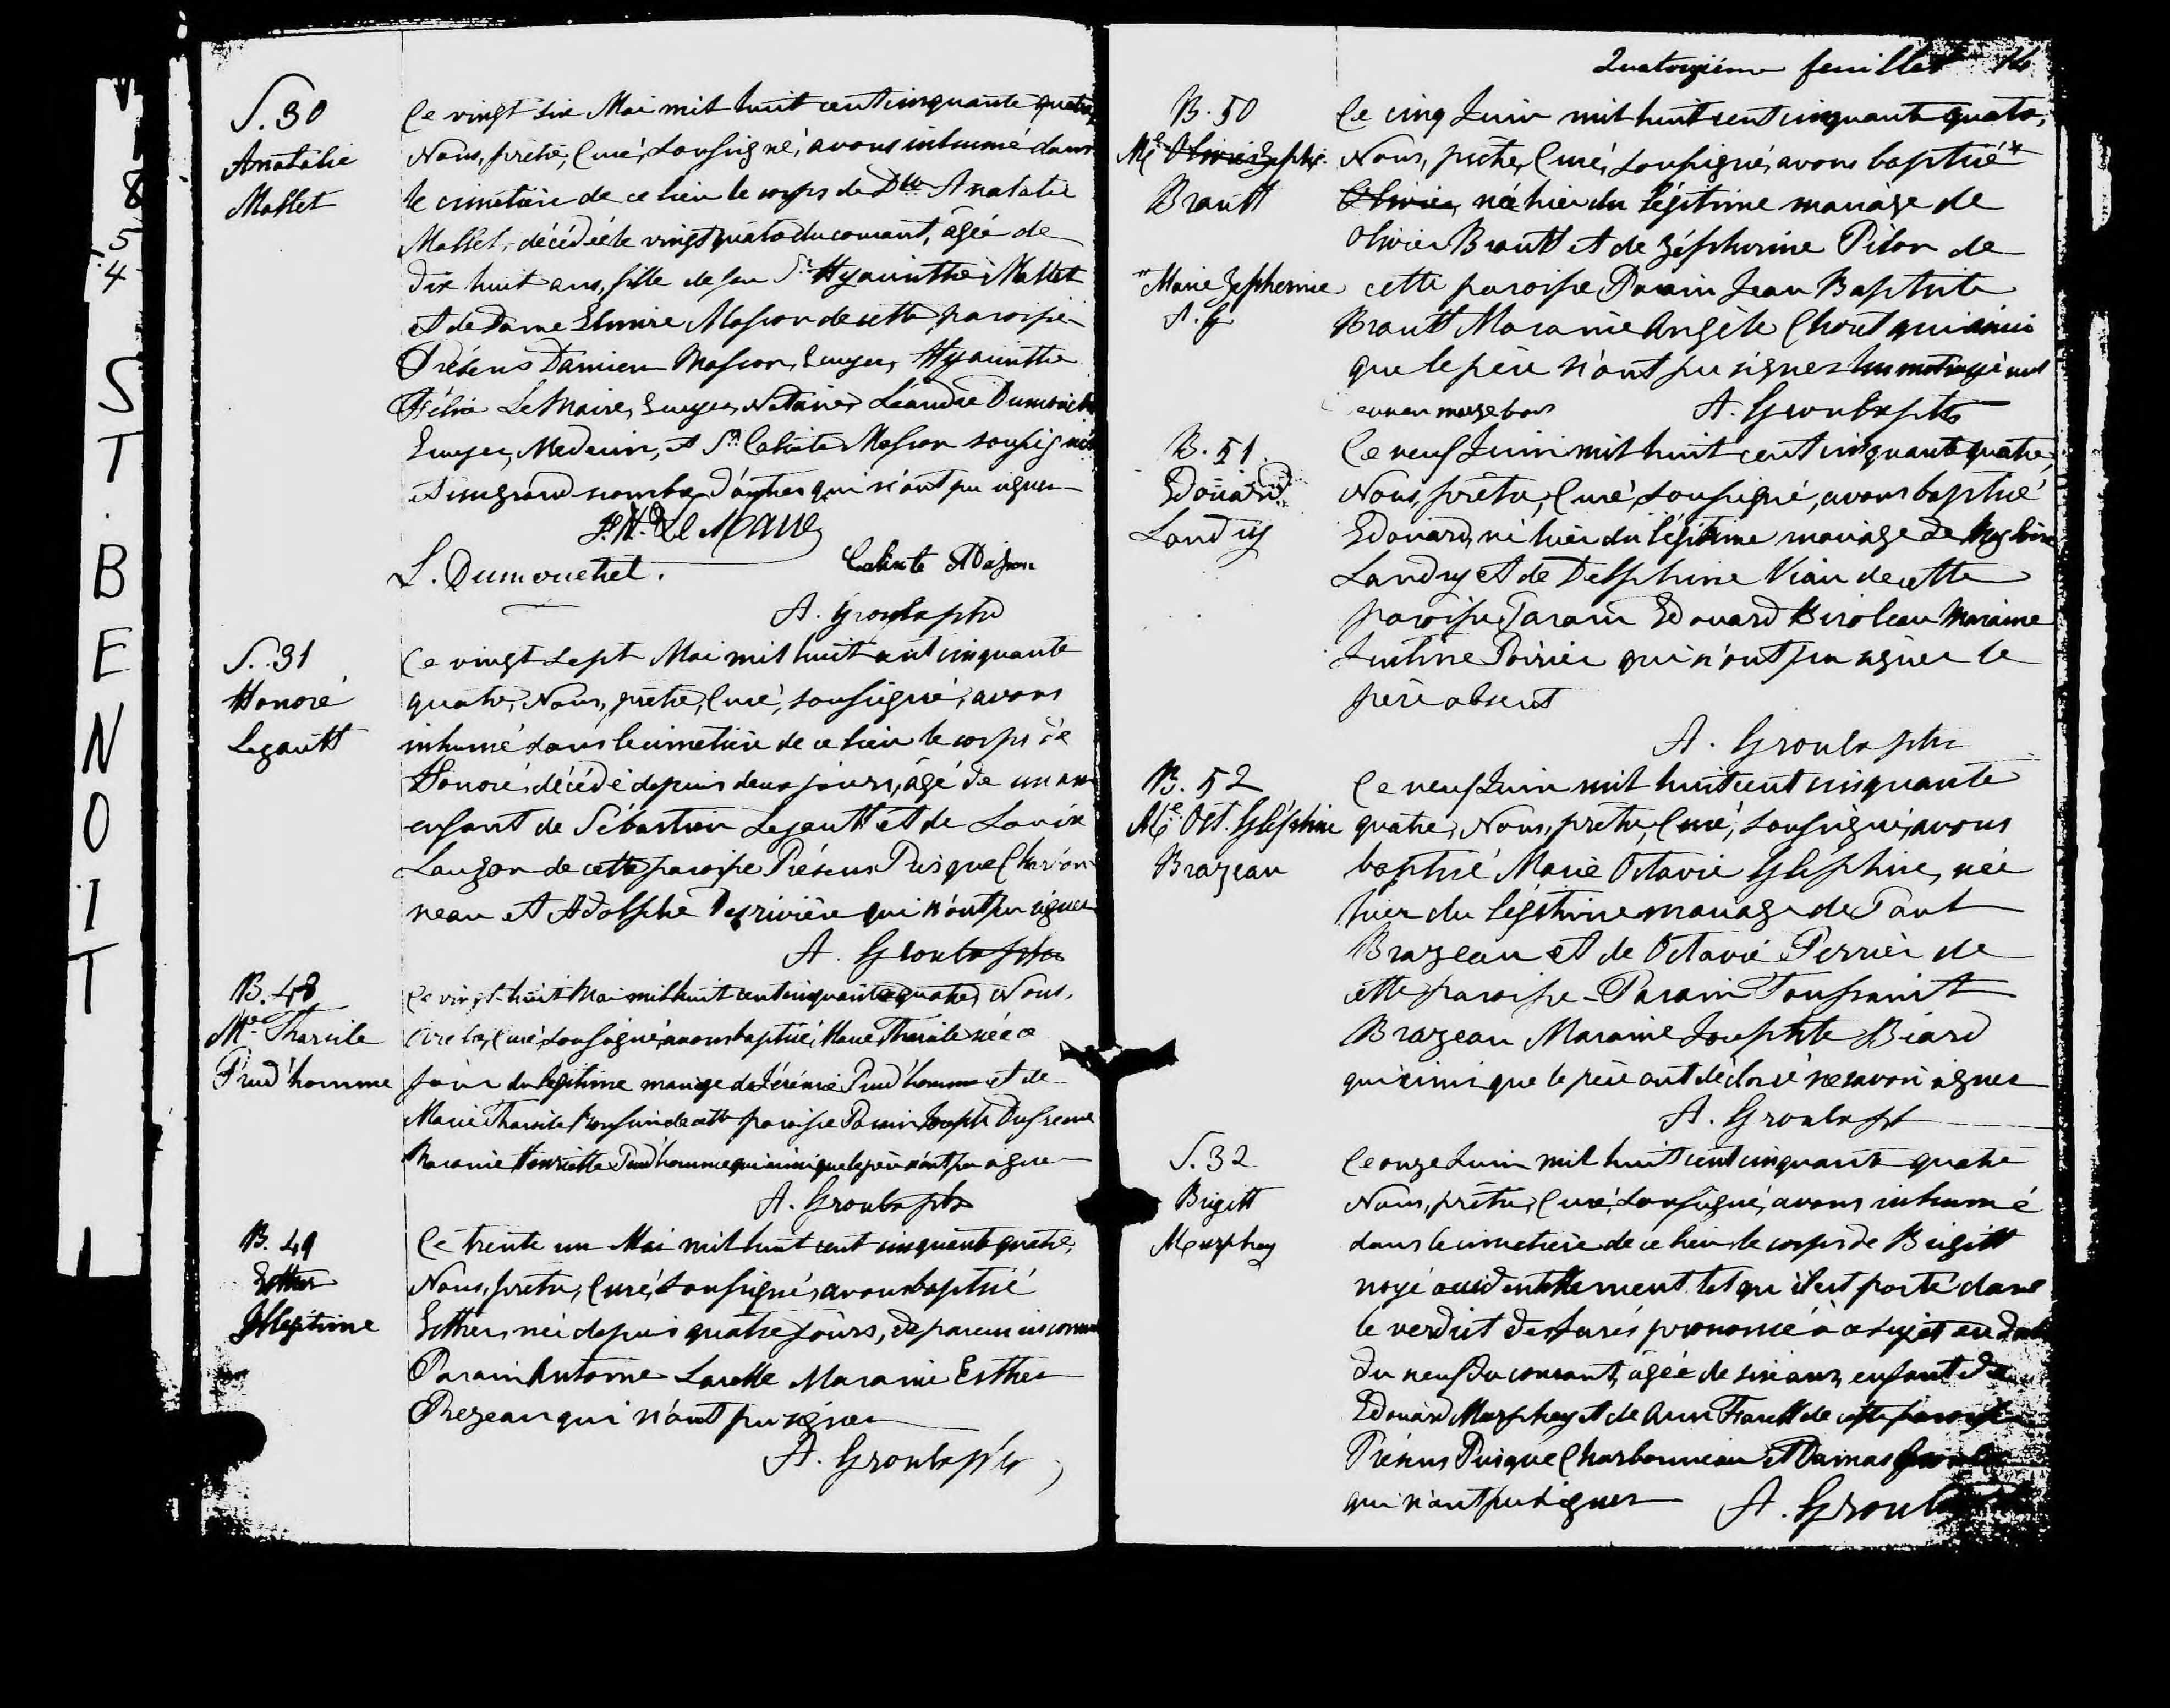 1854 ST. BENOIT
S. 30
Anatalie
Masset
Ce vingt six Mai mil huit cent cinquante quatre
Nous, prêtre, Curé, soussigné, avons inhumé dans
le cimetière de ce lieu le corps de Dlle Anatalie
Masset, décédée le vingt quatre du courant, âgée de
dix huit ans, fille de feu Sr Hyacinthe Masset
et de Dame Elmire Masson de cette paroisse
Présens Damien Masson, Ecuyer, Hyacinthe
Félix LeMaire, Ecuyer, Notaire, Léandre Dumouchel
Ecuyer, Medecin, et Sr Calixte Masson soussignés
et un grand nombre d'autres qui n'ont pu signer
F. H. Le Maire
L. Dumouchel. Calixte Masson
A. Groulx ptre
S. 31
Honoré
Legault
Ce vingt sept Mai mil huit cent cinquante
quatre, Nous, prêtre, Curé, soussigné, avons
inhumé dans le cimetière de ce lieu le corps de
Honoré, décédé depuis deux jours, âgé de un an
enfant de Sébastien Legault et de
Lauzon de cette paroisse Présens Charbon
neau et Adolphe Desrivière qui n'ont pu signer
A. Groulx ptre
B. 48
Me Tharsile
Prud'homme
Ce vingt-huit Mai mil huit cent cinquante quatre, Nous,
prêtre, Curé, soussigné, avons baptisé, Marie Tharsile née ce
jour du légitime mariage de Jérémie Prud'homme et de
Marie Tharsile de cette paroisse Parain Joseph Dufresne
Maraine Henriette Prud'homme qui ainsi que le père n'ont pu signer
A. Groulx ptre
B. 49
Esther
Illégitime
Ce trente un Mai mil huit cent cinquante quatre,
Nous, prêtre, Curé, soussigné, avons baptisé
Esther, née depuis quatre jours, de parens inconnus
Parain Antoine Maraine Esther
qui n'ont pu signer
A. Groulx ptre
Quatorzième feuillet 14
B. 50
Me Olivier Zéphi.
Brault
Ce cinq Juin mil huit cent cinquante quatre,
Nous, prêtre, Curé, soussigné, avons baptisé*
Olivier, née hier du légitime mariage de
Olivier Brault et de Zépherine Pilon de
*Marie Zepherine
A. G
cette paroisse Parain Jean Baptiste
Brault Maraine Angèle qui ainsi
que le père n'ont pu signer un mot rayé nul
en marge bon A. Groulx ptre
B. 51
Edouard
Landry
Ce neuf Juin mil huit cent cinquante quatre,
Nous, prêtre, Curé, soussigné, avons baptisé
Edouard, né hier du légitime mariage de Magloire
Landry et de Delphine Viau de cette
paroisse Parain Edouard Biroleau Maraine
Justine Poirier qui n'ont pu signer le
père absent
A. Groulx ptre
B. 52
Me Oct. Glephire
Brazeau
Ce neuf Juin mil huit cent cinquante
quatre, Nous, prêtre, Curé, soussigné, avons
baptisé Marie Octavie Glephire, née
hier du légitime mariage de Paul
Brazeau et de Octavie Perrier de
cette paroisse - Parain Toussaint
Brazeau Maraine Josephte Biard
qui ainsi que le père ont déclaré ne savoir signer
A. Groulx pt
S. 32
Brigitt
Murphey
Ce onze Juin mil huit cent cinquante quatre
Nous, prêtre, Curé, soussigné, avons inhumé
dans le cimetière de ce lieu le corps de Brigitt
noyé accidentellement tel qu'il est porté dans
le verdict des Jurés prononcé à ce sujet en date
du neuf du courant, âgée de six ans, enfant de
Edouard Murphey et de Ann Farell de cette paroisse
Présens Charbonneau et Damas
qui n'ont pu signer A. Groulx